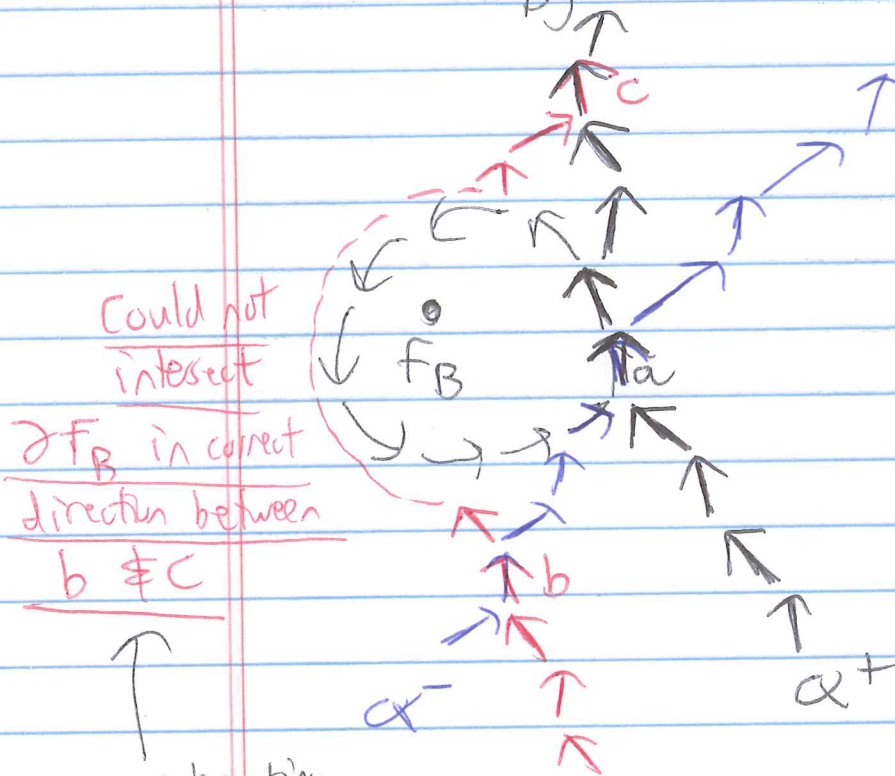 c
Could not
intersect
F_B
a
∂F_B in correct
direction between
b & c
b
α⁻
α⁺